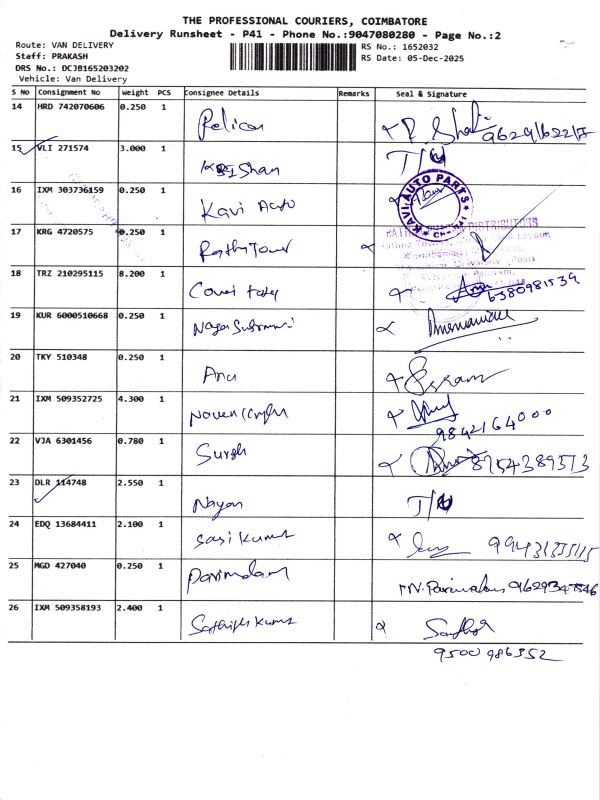 THE PROFESSIONAL COURIERS, COIMBATORE
Delivery Runsheet - P41 - Phone No.:9047080280 - Page No.:2
Route: VAN DELIVERY
Staff: PRAKASH
DRS No.: DCJB165203202
Vehicle: Van Delivery
RS No.: 1652032
RS Date: 05-Dec-2025
S No Consignment No Weight PCS Consignee Details Remarks Seal & Signature
14 HRD 742070606 0.250 1 Pelican
15 VLI 271574 3.000 1 Shan
16 IXM 303736159 0.250 1 Kavi Auto
KAVI AUTO PARTS
17 KRG 4720575 0.250 1 Rathi Tower
DISTRIBUTORS
18 TRZ 210295115 8.200 1 6380981539
19 KUR 6000510668 0.250 1
20 TKY 510348 0.250 1 Anu
21 IXM 509352725 4.300 1
9842164000
22 VJA 6301456 0.780 1 Suresh 8754389513
23 DLR 114748 2.550 1 Nayan
24 EDQ 13684411 2.100 1 Sasi Kumar
25 MGD 427040 0.250 1
26 IXM 509358193 2.400 1 Sathish Kumar
9500986352